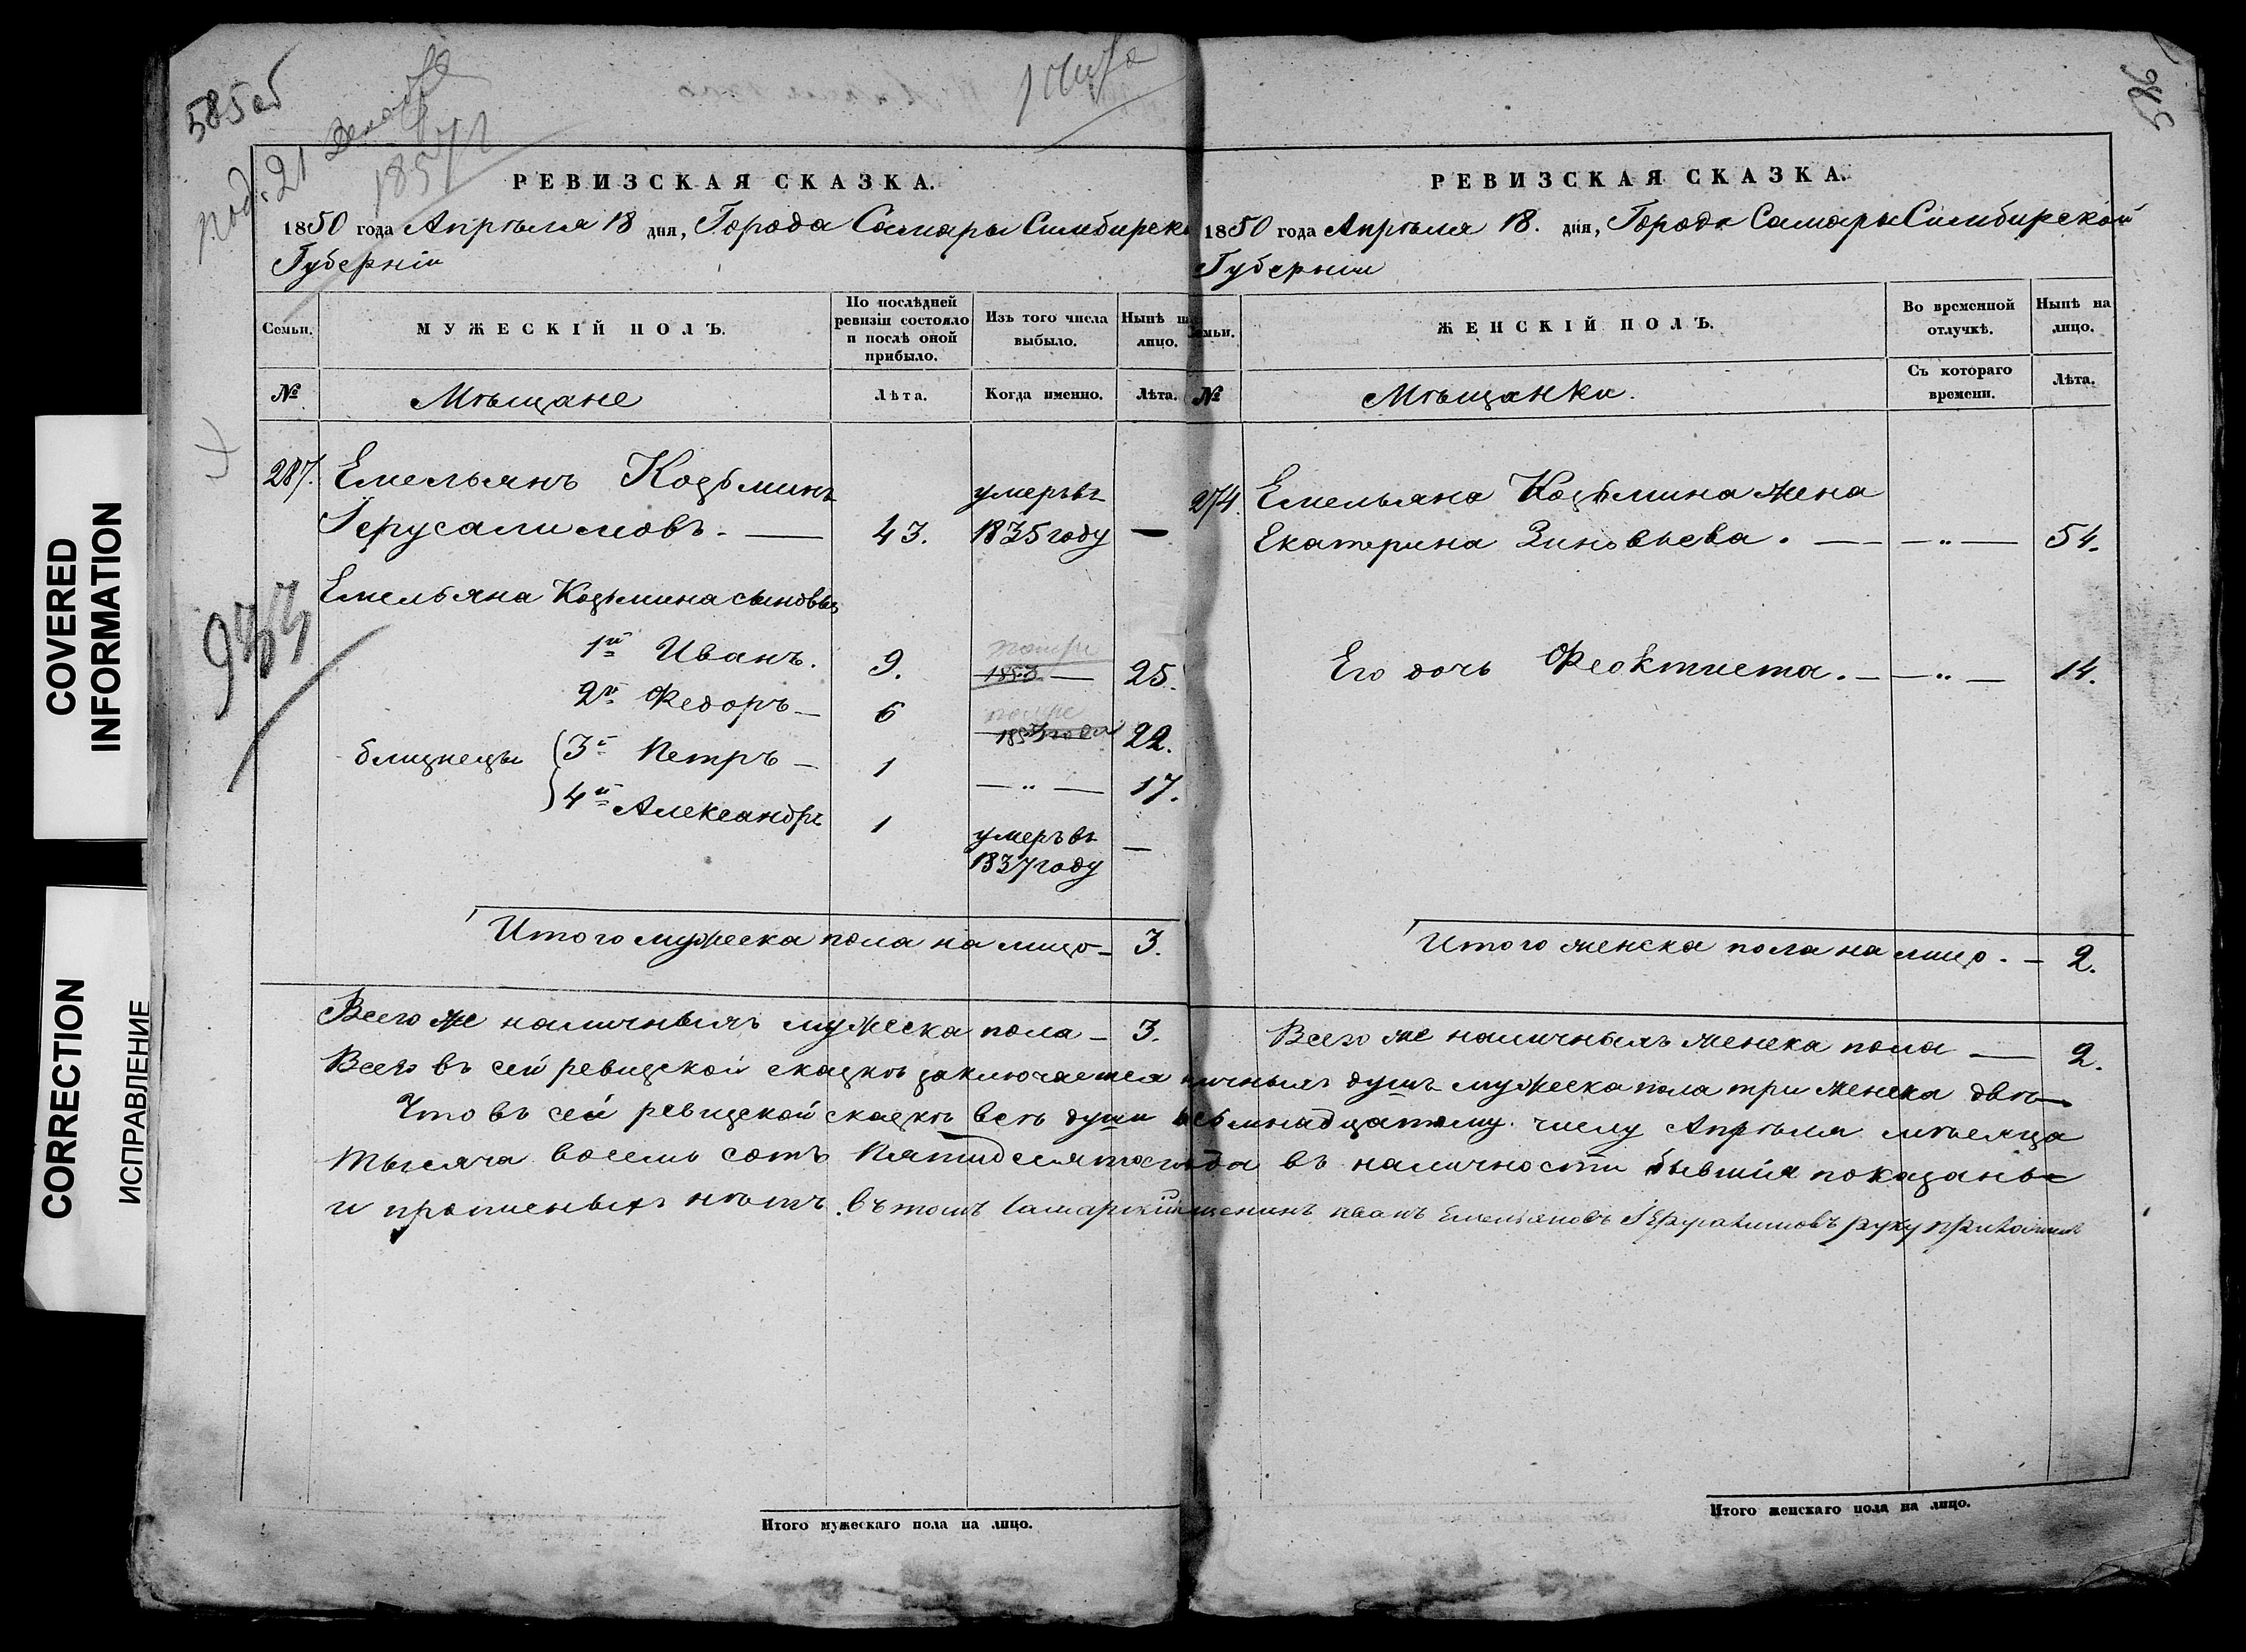 COVERED
INFORMATION
CORRECTION
ИСПРАВЛЕНИЕ
585об
21
1857
РЕВИЗСКАЯ СКАЗКА.
1850 года Апрѣля 18 дня, Города Самары Симбирск
Губерніи
Семьи.
МУЖЕСКІЙ ПОЛЪ.
По послѣдней ревизіи состояло и послѣ оной прибыло.
Изъ того числа выбыло.
Нынѣ на лицо.
№
Мѣщане
Лѣта.
Когда именно.
Лѣта.
287. Емельянъ Козьминъ
Іерусалимовъ. — 43. умеръ въ 1835 году —
Емельяна Козьмина сыновья
1й Иванъ. 9. 1853 — 25.
2й Федоръ — 6 22.
близнецы
3й Петръ — 1 — " — 17.
4й Александръ 1 умеръ въ 1837 году —
Итого мужеска пола на лицо — 3.
Всего же наличныхъ мужеска пола — 3.
586
РЕВИЗСКАЯ СКАЗКА.
1850 года Апрѣля 18. дня, Города Самары Симбирской
Губерніи
Семьи.
ЖЕНСКІЙ ПОЛЪ.
Во временной отлучкѣ.
Нынѣ на лицо.
№
Мѣщанки.
Съ котораго времени.
Лѣта.
274. Емельяна Козьмина жена
Екатерина Зиновьева. — — " — 54.
Его дочь Феоктиста. — — " — 14.
Итого женска пола на лицо. — 2.
Всего же наличныхъ женска пола — 2.
Всего въ сей ревизской сказкѣ заключается наличныхъ душъ мужеска пола три женска двѣ —
Что въ сей ревизской сказкѣ всѣ души къ осьмнадцатому числу Апрѣля мѣсяца
тысяча восемь сотъ пятидесятаго года въ наличности бывшія показаны
и прописныхъ нѣтъ. въ томъ самарскій мещенинъ иванъ Емельяновъ Іерусалимовъ руку приложилъ
Итого мужескаго пола на лицо.
Итого женскаго пола на лицо.